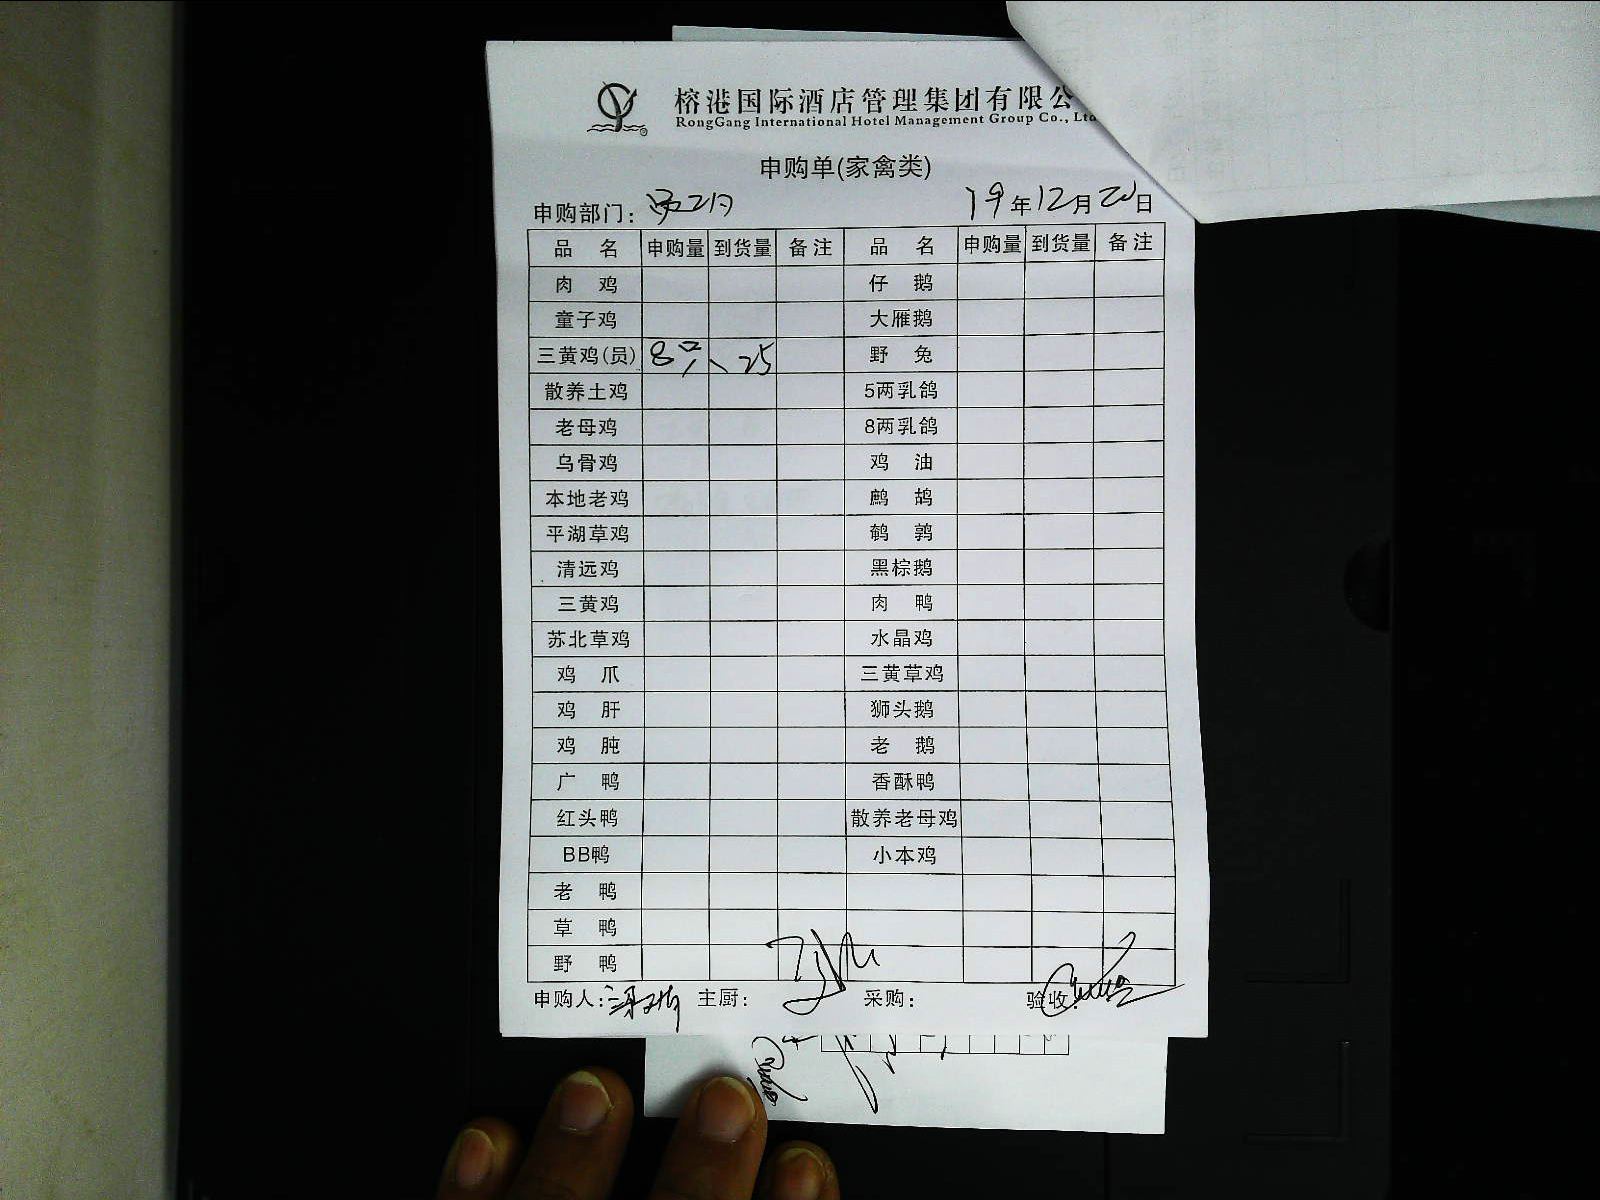 榕港国际酒店管理集团有限公
RongGang International Hotel Management Group Co., Ltd
申购单(家禽类)
申购部门: 19年12月20日
品 名 申购量 到货量 备注 品 名 申购量 到货量 备注
肉 鸡 仔 鹅
童子鸡 大雁鹅
三黄鸡(员) 8只 25 野 兔
散养土鸡 5两乳鸽
老母鸡 8两乳鸽
乌骨鸡 鸡 油
本地老鸡 鹧 鸪
平湖草鸡 鹌 鹑
清远鸡 黑棕鹅
三黄鸡 肉 鸭
苏北草鸡 水晶鸡
鸡 爪 三黄草鸡
鸡 肝 狮头鹅
鸡 肫 老 鹅
广 鸭 香酥鸭
红头鸭 散养老母鸡
BB鸭 小本鸡
老 鸭
草 鸭
野 鸭
申购人: 主厨: 采购: 验收: